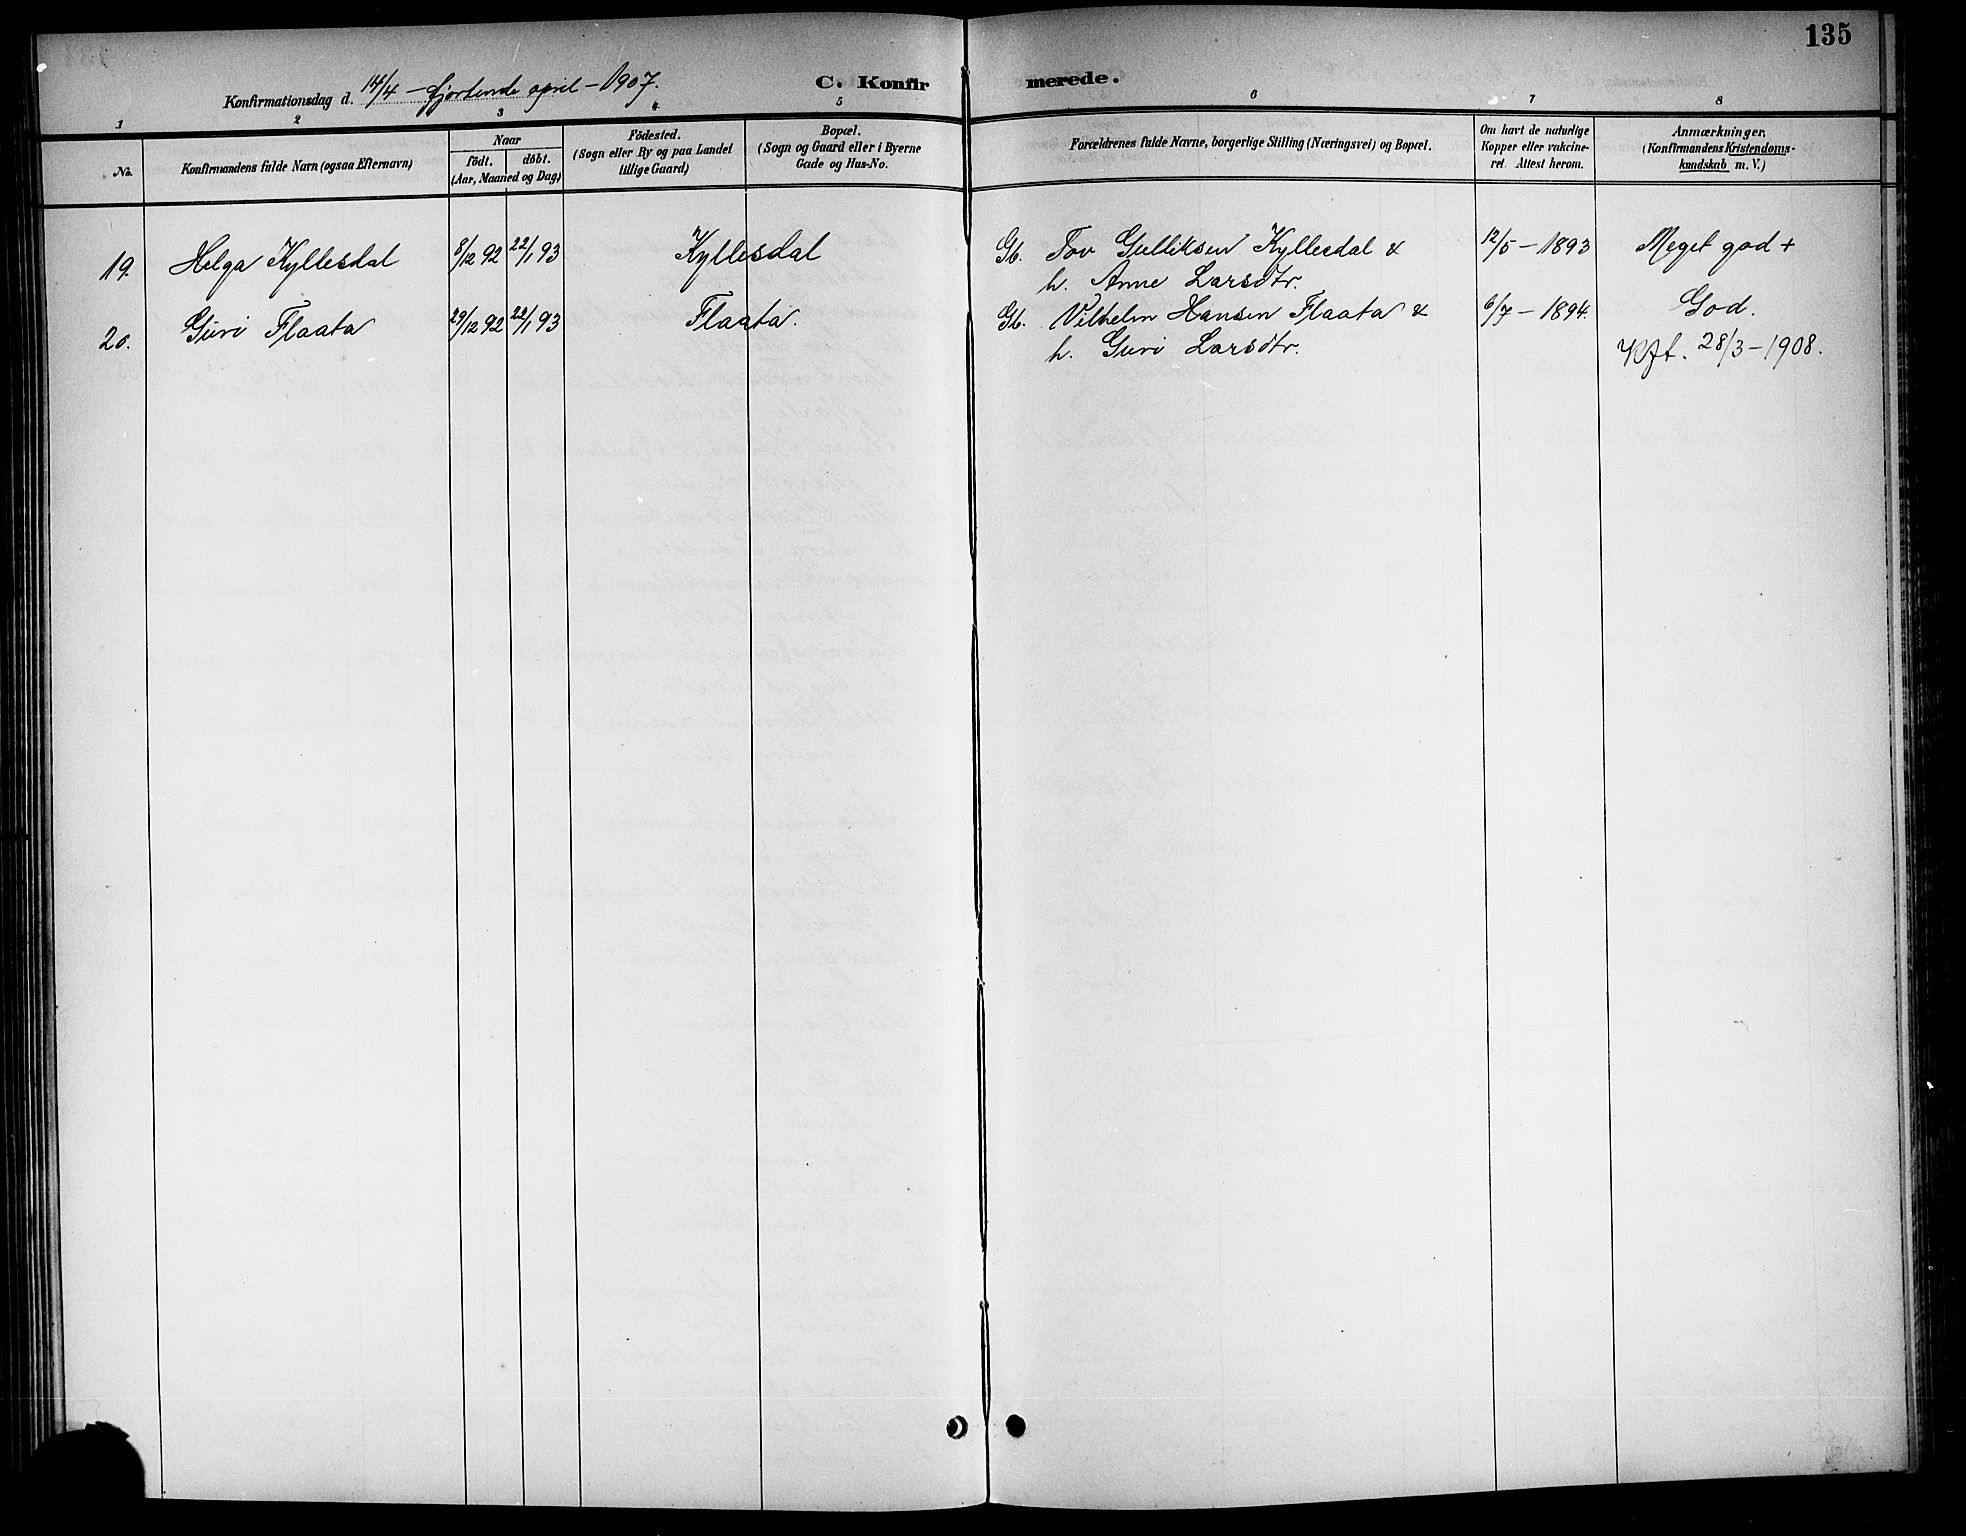 135
C. Konfirmerede.
Konfirmationsdag d. 14/4 – fjortende april – 1907.
1 2 3 4 5 6 7 8
No.
Konfirmandens fulde Navn (ogsaa Efternavn)
Naar
födt. döbt.
(Aar, Maaned og Dag)
Födested.
(Sogn eller By og paa Landet
tillige Gaard)
Bopæl.
(Sogn og Gaard eller i Byerne
Gade og Hus-No.
Forældrenes fulde Navne, borgerlige Stilling (Næringsvei) og Bopæl.
Om havt de naturlige
Kopper eller vakcine-
ret. Attest herom.
Anmærkninger.
(Konfirmandens Kristendoms-
kundskab m. V.)
19. Helga Kyllesdal 8/12 92 22/1 93 Kyllesdal Gb. Tov Gulliksen Kyllesdal & 12/5 – 1893 Meget god +
h. Anne Larsdtr.
20. Guri Flaata 29/12 92 22/1 93 Flaata. Gb. Vilhelm Hansen Flaata & 6/7 – 1894. God.
h. Guri Larsdtr. 28/3 – 1908.